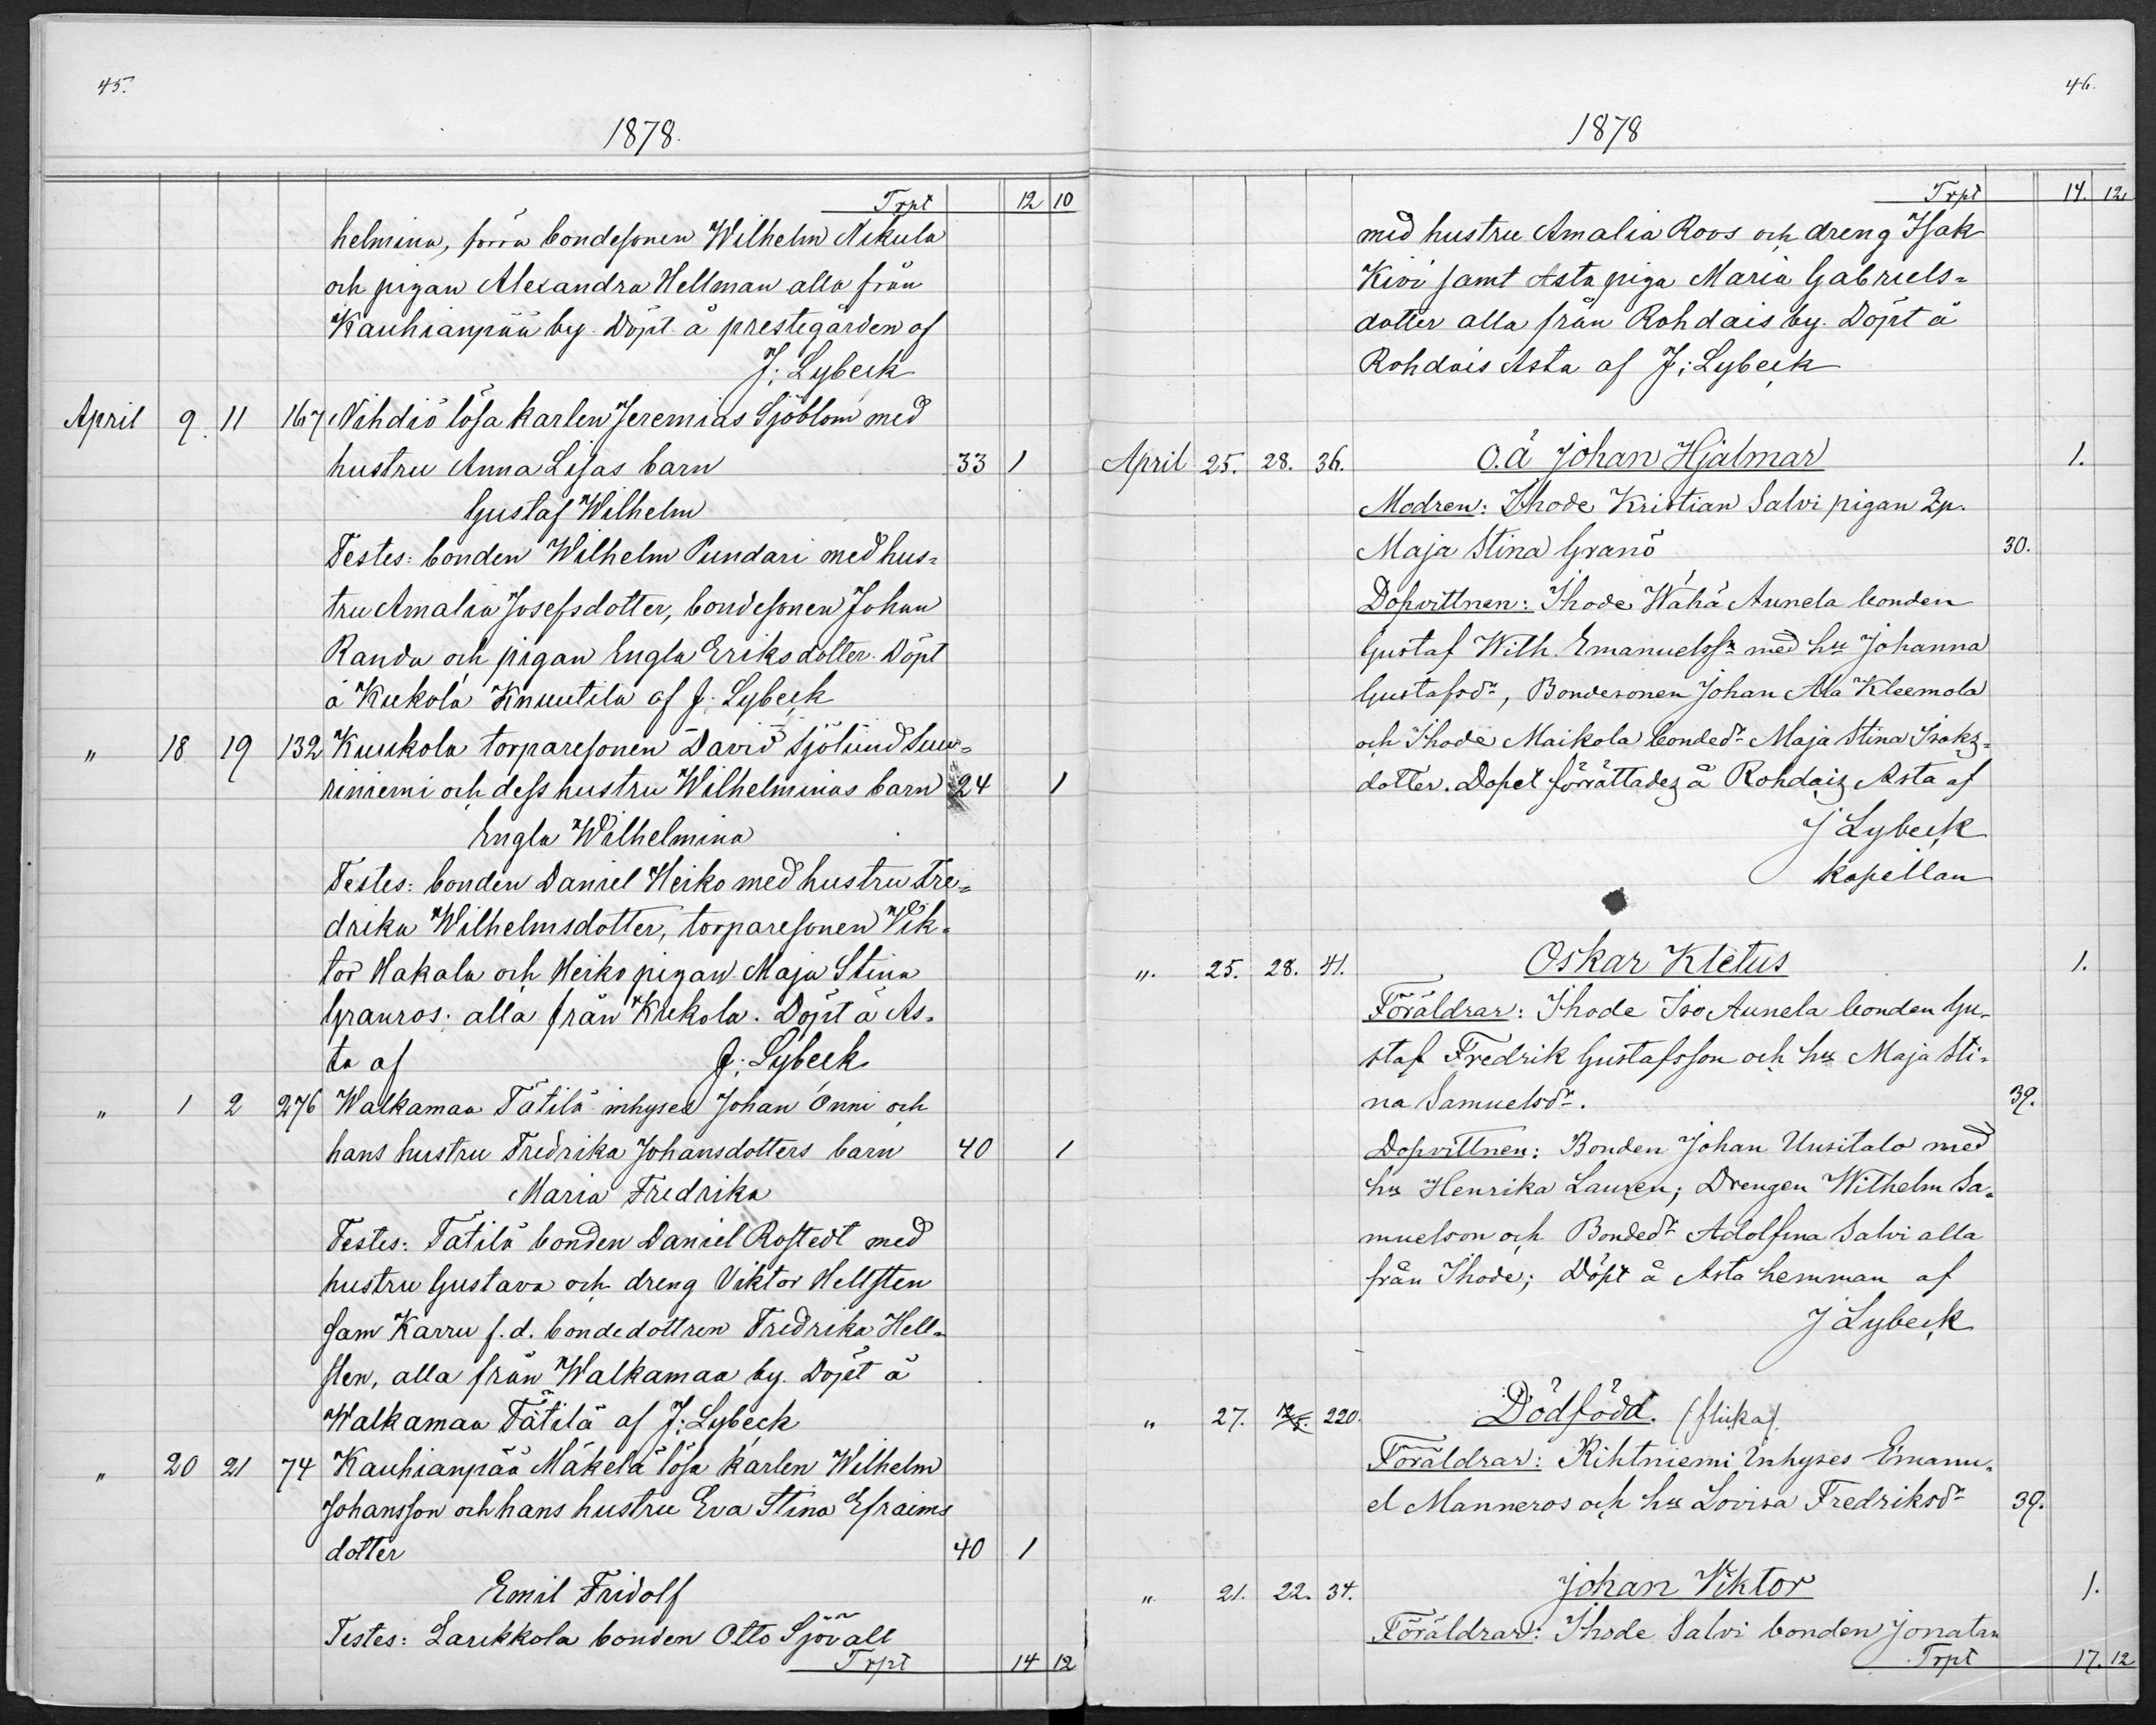 45.
1878.
Trpt 12 10
helmina, förra bondesonen Wilhelm Nikula
och pigan Alexandra Hellman alla från
Kauhianpää by. Döpt å prestegården af
J. Lybeck
April 9. 11 167 Nihdiö lösa karlen Jeremias Sjöblom med
hustru Anna Lisas barn 33 1
Gustaf Wilhelm
Testes: bonden Wilhelm Pundari med hus=
tru Amalia Josefsdotter, bondesonen Johan
Randa och pigan Engla Eriksdotter. Döpt
å Kukola Knuutila af J. Lybeck
" 18 19 132 Kuukola torparesonen David Sjölund Suu=
riniemi och dess hustru Wilhelminas barn 24 1
Engla Wilhelmina
Testes: bonden Daniel Heiko med hustru Fre=
drika Wilhelmsdotter, torparesonen Vik=
tor Hakala och Heiko pigan Maja Stina
Granros. alla från Kukola. Döpt å As=
ta af J. Lybeck
" 1 2 276 Walkamaa Tätilä inhyses Johan Onni och
hans hustru Fredrika Johansdotters barn 40 1
Maria Fredrika
Testes: Tätilä bonden Daniel Rostedt med
hustru Gustava och dreng Viktor Hellsten
sam Karru f.d. bondedottren Fredrika Hell=
sten, alla från Walkamaa by. Döpt å
Walkamaa Tätilä af J. Lybeck
" 20 21 74 Kauhianpää Mäkelä lösa karlen Wilhelm
Johansson och hans hustru Eva Stina Efraims
dotter 40 1
Emil Fridolf
Testes: Larikkola bonden Otto Sjövall
Trpt 14 12
46.
1878
Trpt 14. 12.
med hustru Amalia Roos och dreng Isak
Kivi samt Asta piga Maria Gabriels=
dotter alla från Rohdais by. Döpt å
Rohdais Asta af J. Lybeck
April 25. 28. 36. O.ä Johan Hjalmar 1.
Modren: Ihode Kristian Salvi pigan Qp.
Maja Stina Granö 30.
Dopvittnen: Ihode Wähä Aunela bonden
Gustaf Wilh. Emanuelssn med hu Johanna
Gustafsdr, Bondesonen Johan Ala Kleemola
och Ihode Maikola bondedr Maja Stina Isaks=
dotter. Dopet förrättades å Rohdais Asta af
J Lybeck
kapellan
". 25. 28. 41. Oskar Kletus 1.
Föräldrar: Ihode Iso Aunela bonden Gu=
staf Fredrik Gustafsson och hu Maja Sti=
na Samuelsdr. 39.
Dopvittnen: Bonden Johan Uusitalo med
hu Henrika Lauren; Drengen Wilhelm Sa=
muelson och Bondedr Adolfina Salvi alla
från Ihode; Döpt å Asta hemman af
J Lybeck
" 27. 220. Dödfödd. (flicka)
Föräldrar: Rihtniemi Inhyses Emanu=
el Manneros och hu Lovisa Fredriksdr 39.
" 21. 22. 34. Johan Viktor 1.
Föräldrar: Ihode Salvi bonden Jonatan
Trpt 17. 12